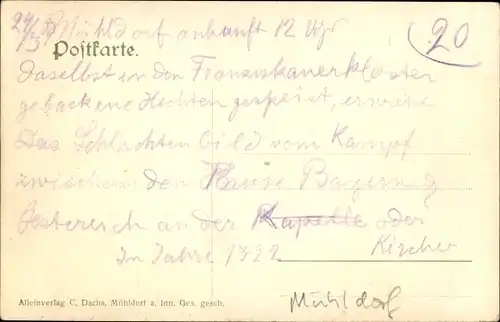 Mühldorf ankunft 12 Uhr
20
Postkarte.
daselbst in den Franziskanerkloster
gebackene Hechten gespeist,
Das Schlachten bild vom Kampf
zwischen den Hause Bayern &
Oesterreich an der Kapelle oder
Kirche
Im Jahre 1322
Alleinverlag C. Dachs, Mühldorf a. Inn. Ges. gesch.
Mühldorf